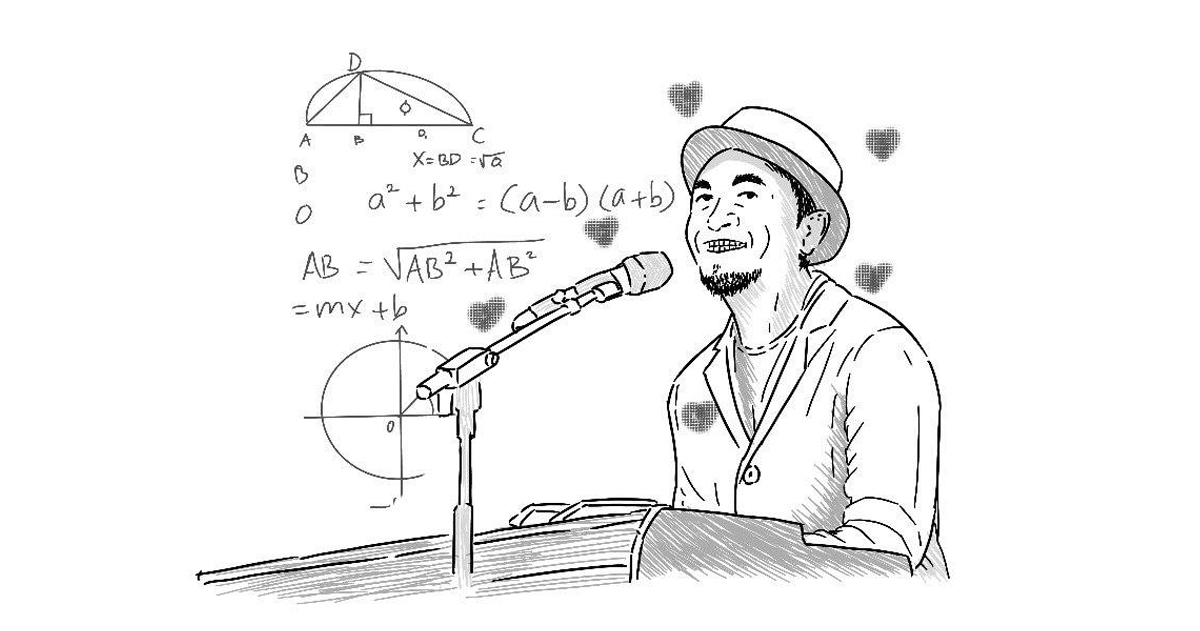 D
Φ
A B O, C
X=BD=√a
B
O
a² + b² = (a-b)(a+b)
AB = √AB² + AB²
= mx + b
0